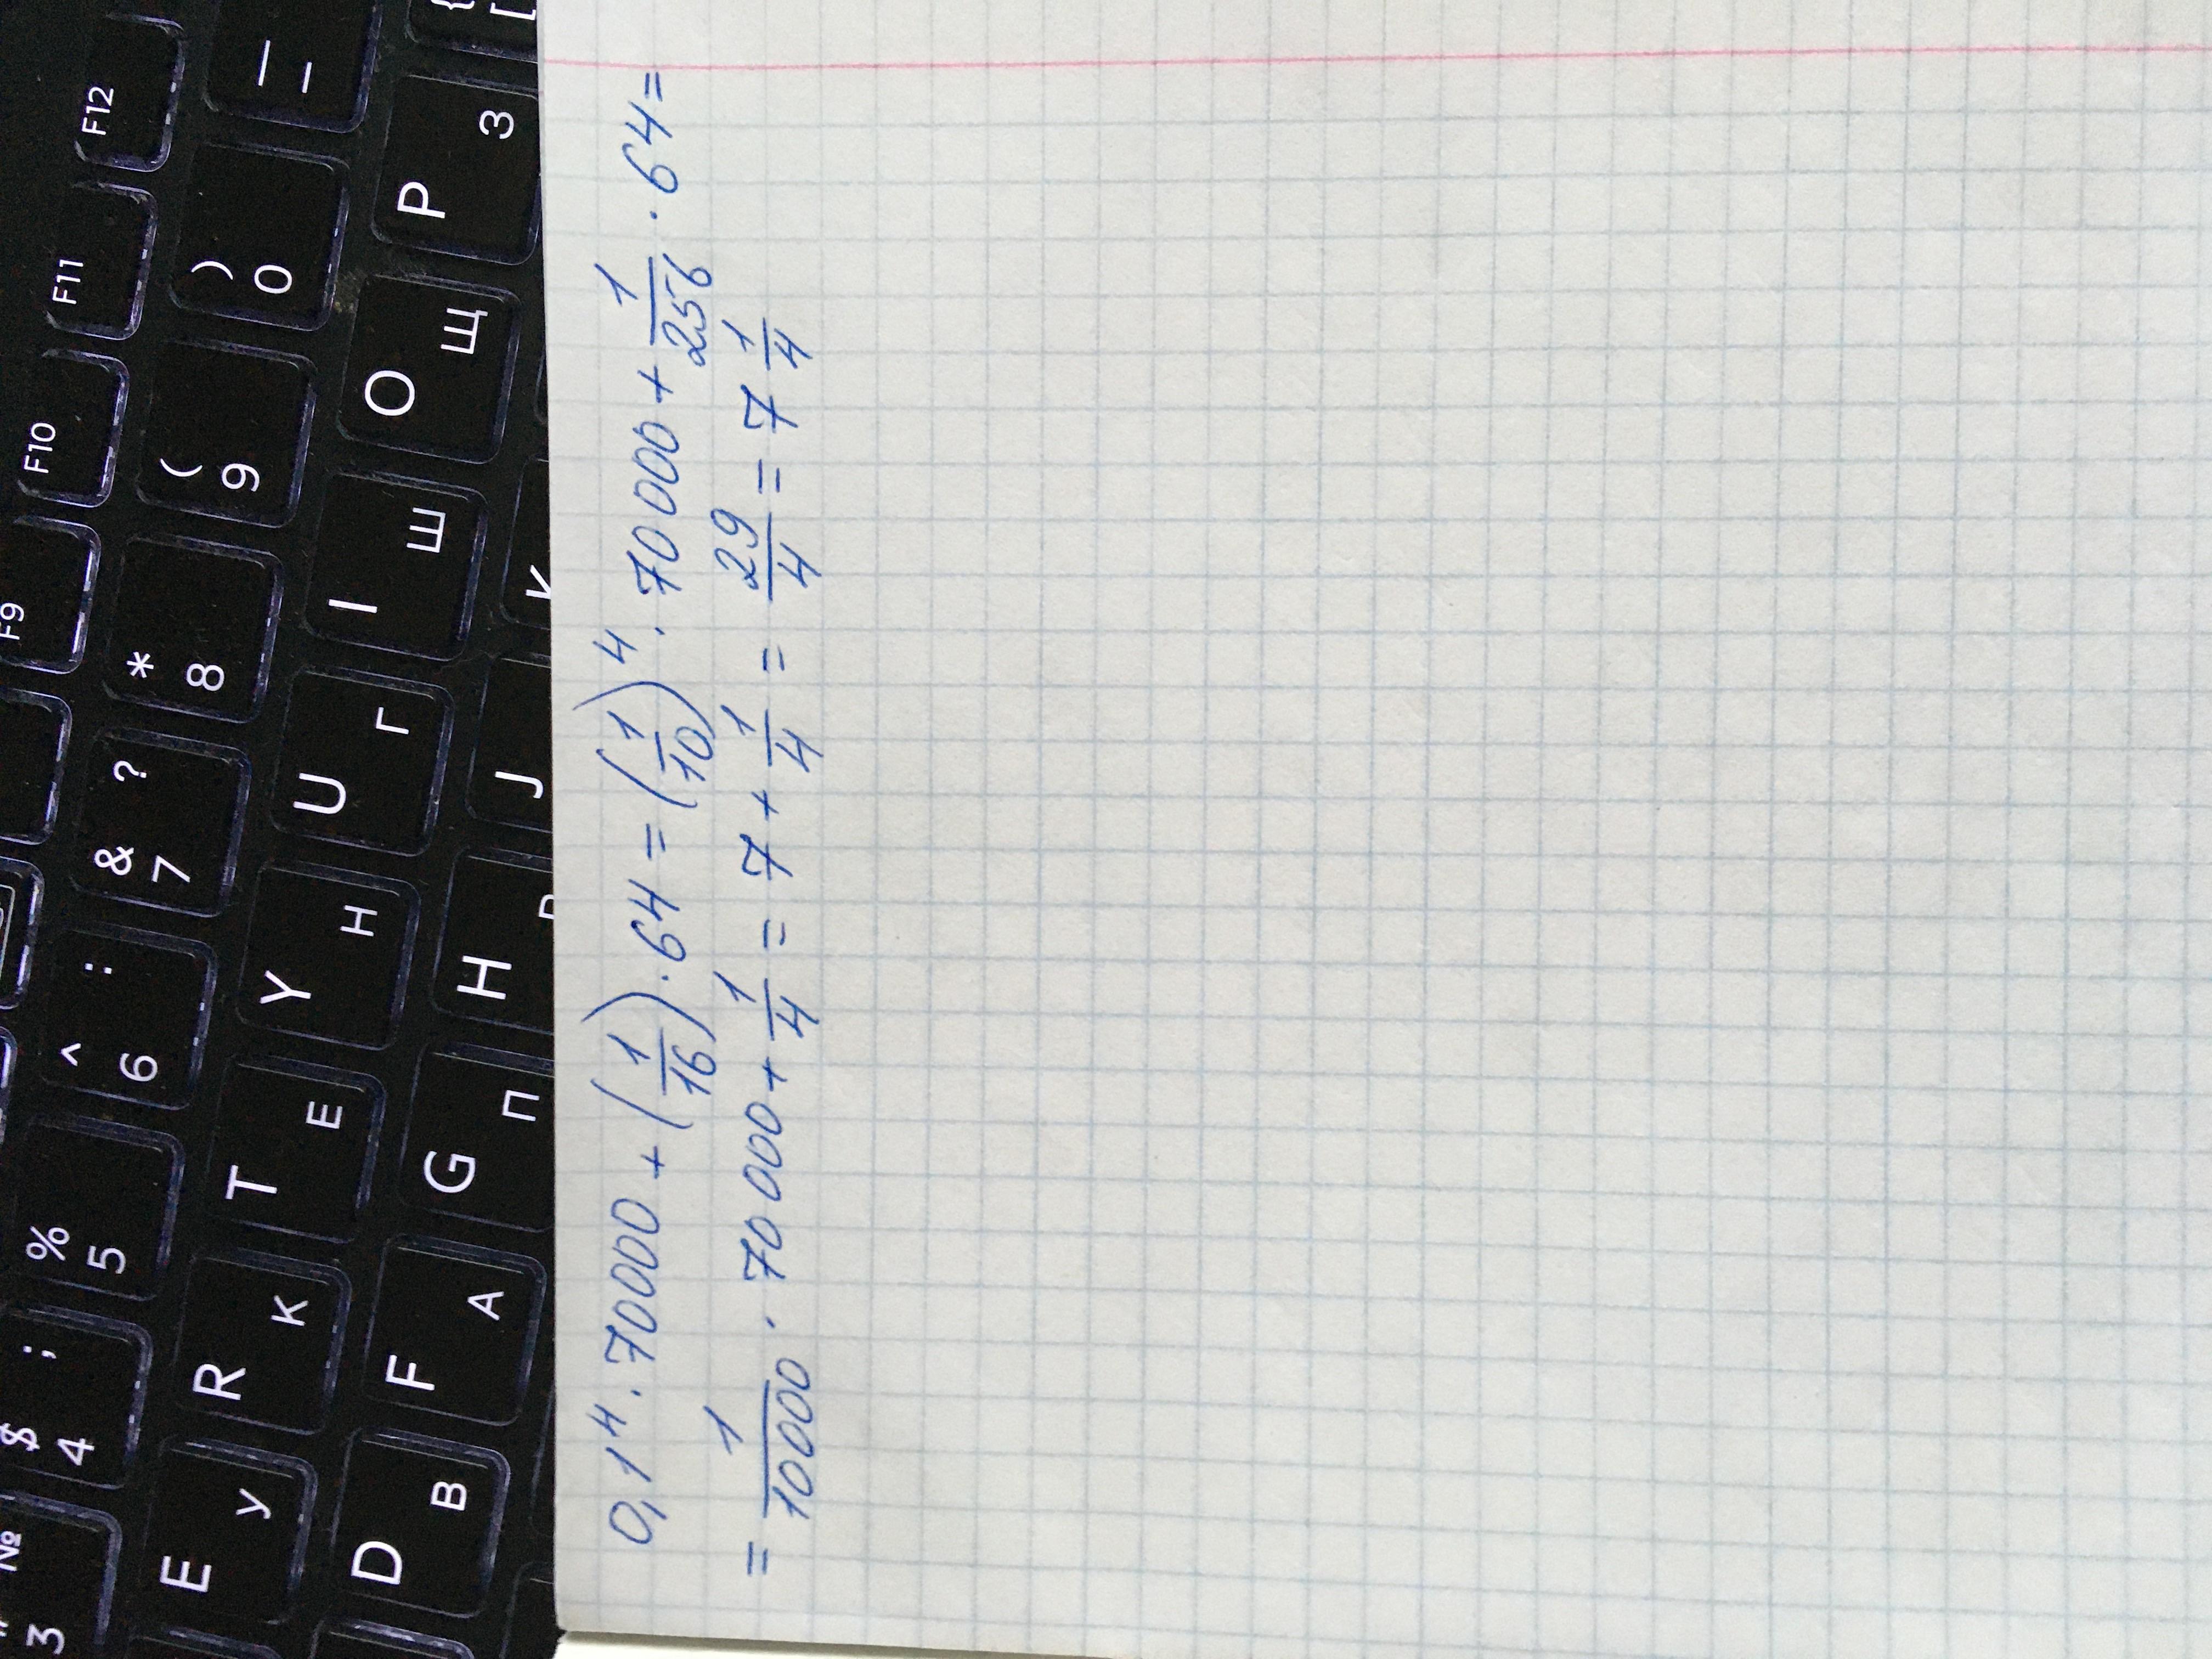 0,1⁴ · 70000 + (1/16) · 64 = (1/10)⁴ · 70000 + 1/256 · 64 =
= 1/10000 · 70 000 + 1/4 = 7 + 1/4 = 29/4 = 7 1/4
F9 F10 F11 F12
№ 3 $ ; 4 % 5 ^ : 6 & ? 7 * 8 ( 9 ) 0 — =
E У R К T Е Y Н U Г I Ш O Щ P З { [
D В F А G П H Р J K